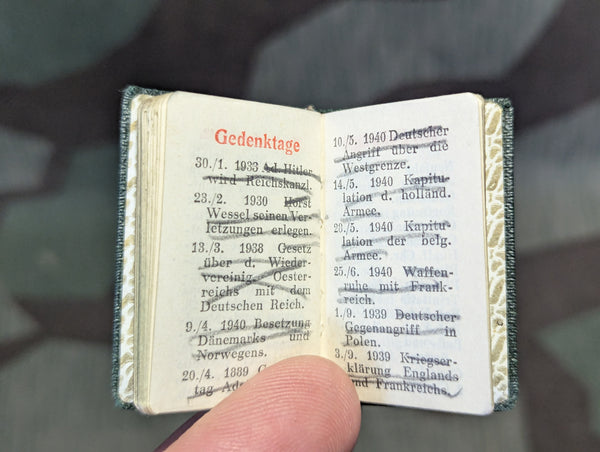 Gedenktage
30./1. 1933 Ad. Hitler
wird Reichskanzl.
23./2. 1930 Horst
Wessel seinen Ver-
letzungen erlegen.
13./3. 1938 Gesetz
über d. Wieder-
vereinig. Oester-
reichs mit dem
Deutschen Reich.
9./4. 1940 Besetzung
Dänemarks und
Norwegens.
20./4. 1889
tag
10./5. 1940 Deutscher
Angriff über die
Westgrenze.
14./5. 1940 Kapitu-
lation d. holländ.
Armee.
28./5. 1940 Kapitu-
lation der belg.
Armee.
25./6. 1940 Waffen-
ruhe mit Frank-
reich.
1./9. 1939 Deutscher
Gegenangriff in
Polen.
3./9. 1939 Kriegser-
klärung Englands
und Frankreichs.